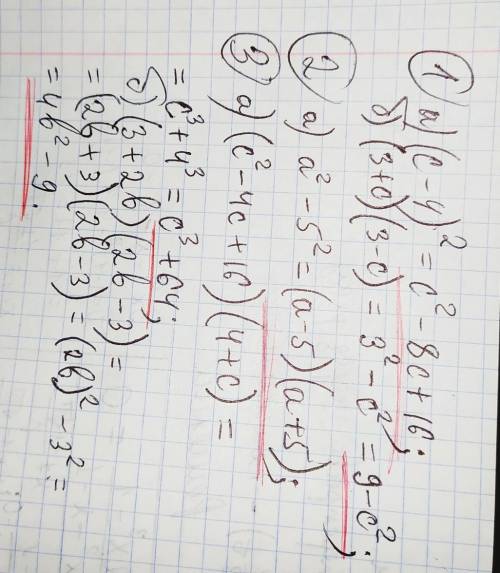 ① а) (c-4)² = c² - 8c + 16;
б) (3+c)(3-c) = 3² - c² = 9 - c²;
② а) a² - 5² = (a-5)(a+5);
③ а) (c² - 4c + 16)(4+c) =
= c³ + 4³ = c³ + 64;
б) (3+2b)(2b-3) =
= (2b+3)(2b-3) = (2b)² - 3² =
= 4b² - 9.